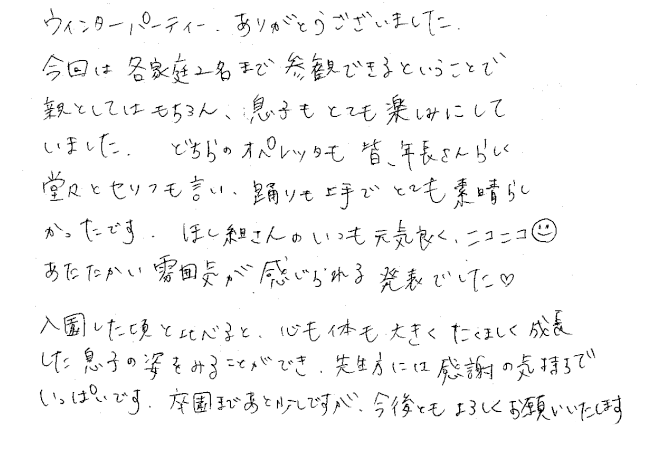 ウィンターパーティー、ありがとうございました。
今回は各家庭2名まで参観できるということで
親としてはもちろん、息子もとても楽しみにして
いました。 どちらのオペレッタも皆、年長さんらしく
堂々とセリフも言い、踊りも上手でとても素晴らし
かったです。 ほし組さんのいつも元気良く、ニコニコ☺
あたたかい雰囲気が感じられる発表でした♡
入園した頃と比べると、心も体も大きくたくましく成長
した息子の姿をみることができ、先生方には感謝の気持ちで
いっぱいです。卒園まであと少しですが、今後ともよろしくお願いいたします